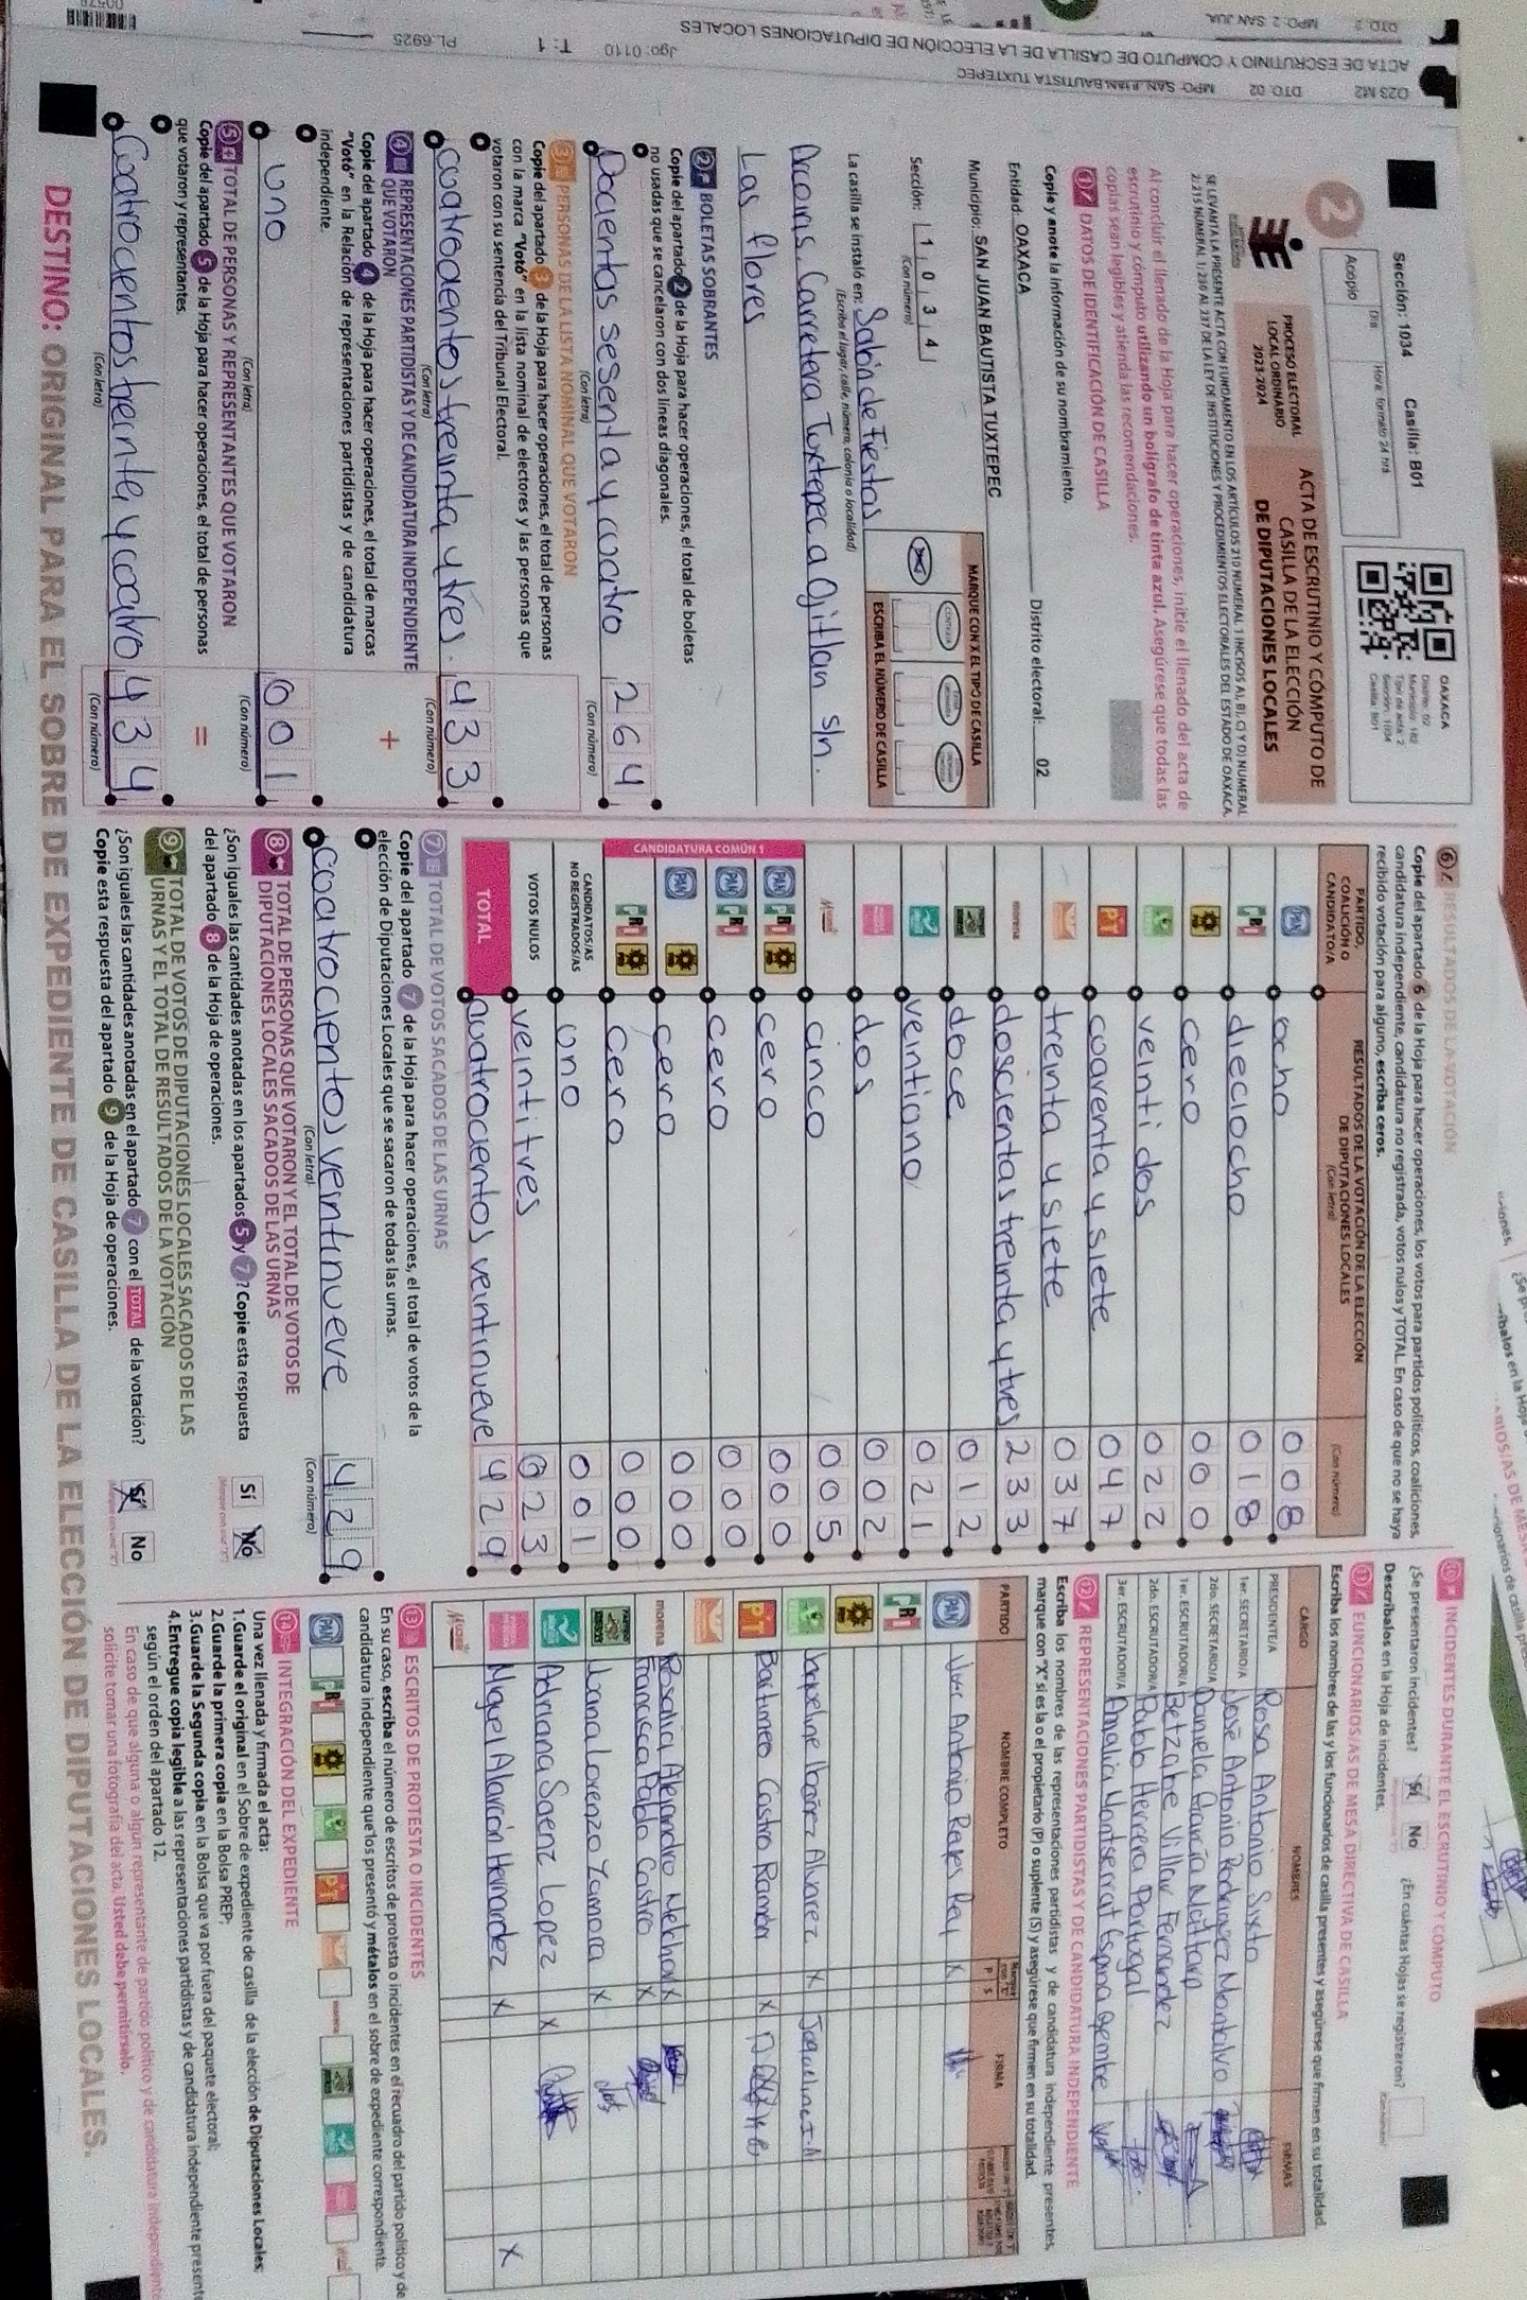 Sección: 1034 Casilla: B01
Día
Hora: formato 24 hrs
Acopio
2
OAXACA
Distrito: 02
Tipo de acta: 2
Sección: 1034
Casilla: B01
PROCESO ELECTORAL
LOCAL ORDINARIO
2023-2024
ACTA DE ESCRUTINIO Y CÓMPUTO DE
CASILLA DE LA ELECCIÓN
DE DIPUTACIONES LOCALES
SE LEVANTA LA PRESENTE ACTA CON FUNDAMENTO EN LOS ARTÍCULOS 219 NUMERAL 1 INCISOS A), B), C) Y D) NUMERAL
2; 215 NUMERAL 1; 236 AL 237 DE LA LEY DE INSTITUCIONES Y PROCEDIMIENTOS ELECTORALES DEL ESTADO DE OAXACA.
Al concluir el llenado de la Hoja para hacer operaciones, inicie el llenado del acta de
escrutinio y cómputo utilizando un bolígrafo de tinta azul. Asegúrese que todas las
copias sean legibles y atienda las recomendaciones.
1 DATOS DE IDENTIFICACIÓN DE CASILLA
Copie y anote la información de su nombramiento.
Entidad: OAXACA Distrito electoral: 02
Municipio: SAN JUAN BAUTISTA TUXTEPEC
Sección: 1 0 3 4
(Con número)
MARQUE CON X EL TIPO DE CASILLA
ESCRIBA EL NÚMERO DE CASILLA
La casilla se instaló en: Salón de Fiestas
(Escriba el lugar, calle, número, colonia o localidad)
Arcoiris, Carretera Tuxtepec a Ojitlan s/n.
Las flores
2 BOLETAS SOBRANTES
Copie del apartado 2 de la Hoja para hacer operaciones, el total de boletas
no usadas que se cancelaron con dos líneas diagonales.
Docientas sesenta y cuatro 264
(Con letra) (Con número)
3 PERSONAS DE LA LISTA NOMINAL QUE VOTARON
Copie del apartado 3 de la Hoja para hacer operaciones, el total de personas
con la marca "Votó" en la lista nominal de electores y las personas que
votaron con su sentencia del Tribunal Electoral.
cuatrocientos treinta y tres. 433
(Con letra) (Con número)
4 REPRESENTACIONES PARTIDISTAS Y DE CANDIDATURA INDEPENDIENTE
QUE VOTARON
+
Copie del apartado 4 de la Hoja para hacer operaciones, el total de marcas
"Votó" en la Relación de representaciones partidistas y de candidatura
independiente.
uno 001
(Con letra) (Con número)
5 TOTAL DE PERSONAS Y REPRESENTANTES QUE VOTARON
=
Copie del apartado 5 de la Hoja para hacer operaciones, el total de personas
que votaron y representantes.
Cuatrocientos treinta y cuatro 434
(Con letra) (Con número)
6 RESULTADOS DE LA VOTACIÓN
Copie del apartado 6 de la Hoja para hacer operaciones, los votos para partidos políticos, coaliciones,
candidatura independiente, candidatura no registrada, votos nulos y TOTAL. En caso de que no se haya
recibido votación para alguno, escriba ceros.
PARTIDO,
COALICIÓN O
CANDIDATO/A
RESULTADOS DE LA VOTACIÓN DE LA ELECCIÓN
DE DIPUTACIONES LOCALES
(Con letra) (Con número)
PAN ocho 008
PRI dieciocho 018
PRD cero 000
veintidos 022
PT cuarenta y siete 047
treinta y siete 037
morena doscientas treinta y tres 233
doce 012
veintiuno 021
dos 002
Mujer cinco 005
CANDIDATURA COMÚN 1
PAN PRI PRD cero 000
PAN PRI cero 000
PAN PRD cero 000
PRI PRD cero 000
CANDIDATOS/AS
NO REGISTRADOS/AS uno 001
VOTOS NULOS veintitres 023
TOTAL cuatrocientos veintinueve 429
7 TOTAL DE VOTOS SACADOS DE LAS URNAS
Copie del apartado 7 de la Hoja para hacer operaciones, el total de votos de la
elección de Diputaciones Locales que se sacaron de todas las urnas.
cuatrocientos veintinueve 429
(Con letra) (Con número)
8 TOTAL DE PERSONAS QUE VOTARON Y EL TOTAL DE VOTOS DE
DIPUTACIONES LOCALES SACADOS DE LAS URNAS
¿Son iguales las cantidades anotadas en los apartados 5 y 7? Copie esta respuesta
del apartado 8 de la Hoja de operaciones.
Sí No
9 TOTAL DE VOTOS DE DIPUTACIONES LOCALES SACADOS DE LAS
URNAS Y EL TOTAL DE RESULTADOS DE LA VOTACIÓN
¿Son iguales las cantidades anotadas en el apartado 7 con el TOTAL de la votación?
Copie esta respuesta del apartado 9 de la Hoja de operaciones.
Sí No
10 INCIDENTES DURANTE EL ESCRUTINIO Y CÓMPUTO
¿Se presentaron incidentes? Sí No ¿En cuántas Hojas se registraron?
Descríbalos en la Hoja de incidentes.
11 FUNCIONARIOS/AS DE MESA DIRECTIVA DE CASILLA
Escriba los nombres de las y los funcionarios de casilla presentes y asegúrese que firmen en su totalidad.
CARGO NOMBRES FIRMAS
PRESIDENTE/A Rosa Antonio Sixto
1er. SECRETARIO/A José Antonio Rodriguez Montalvo
2do. SECRETARIO/A Daniela García
1er. ESCRUTADOR/A Betzabe Villar Fernandez
2do. ESCRUTADOR/A Pablo Herrera Portugal
3er. ESCRUTADOR/A Amalia Montserrat Espina
12 REPRESENTACIONES PARTIDISTAS Y DE CANDIDATURA INDEPENDIENTE
Escriba los nombres de las representaciones partidistas y de candidatura independiente presentes,
marque con "X" si es la o el propietario (P) o suplente (S) y asegúrese que firmen en su totalidad.
PARTIDO NOMBRE COMPLETO P S FIRMA
PAN Antonio Reyes X
PRI
PRD
Jaqueline Ibañez Alvarez X Jaqueline I.A
PT Bartimeo Castro Ramón X
morena Rosalia Alejandro Melchor X
Francisca Pablo Castro X
Juana Lorenzo Zamora X
Adriana Saenz Lopez X
Miguel Alarcón Hernandez X X
Mujer
13 ESCRITOS DE PROTESTA O INCIDENTES
En su caso, escriba el número de escritos de protesta o incidentes en el recuadro del partido político y de
candidatura independiente que los presentó y métalos en el sobre de expediente correspondiente.
PAN PRI PRD PT morena
14 INTEGRACIÓN DEL EXPEDIENTE
Una vez llenada y firmada el acta:
1. Guarde el original en el Sobre de expediente de casilla de la elección de Diputaciones Locales;
2. Guarde la primera copia en la Bolsa PREP;
3. Guarde la Segunda copia en la Bolsa que va por fuera del paquete electoral;
4. Entregue copia legible a las representaciones partidistas y de candidatura independiente
según el orden del apartado 12.
En caso de que alguna o algún representante de partido político y de candidatura independiente
solicite tomar una fotografía del acta, Usted debe permitírselo.
DESTINO: ORIGINAL PARA EL SOBRE DE EXPEDIENTE DE CASILLA DE LA ELECCIÓN DE DIPUTACIONES LOCALES.
023 M2 DTO. 02 MPO. SAN JUAN BAUTISTA TUXTEPEC
ACTA DE ESCRUTINIO Y COMPUTO DE CASILLA DE LA ELECCIÓN DE DIPUTACIONES LOCALES
Jgo: 0110 T: 1 PL: 6925